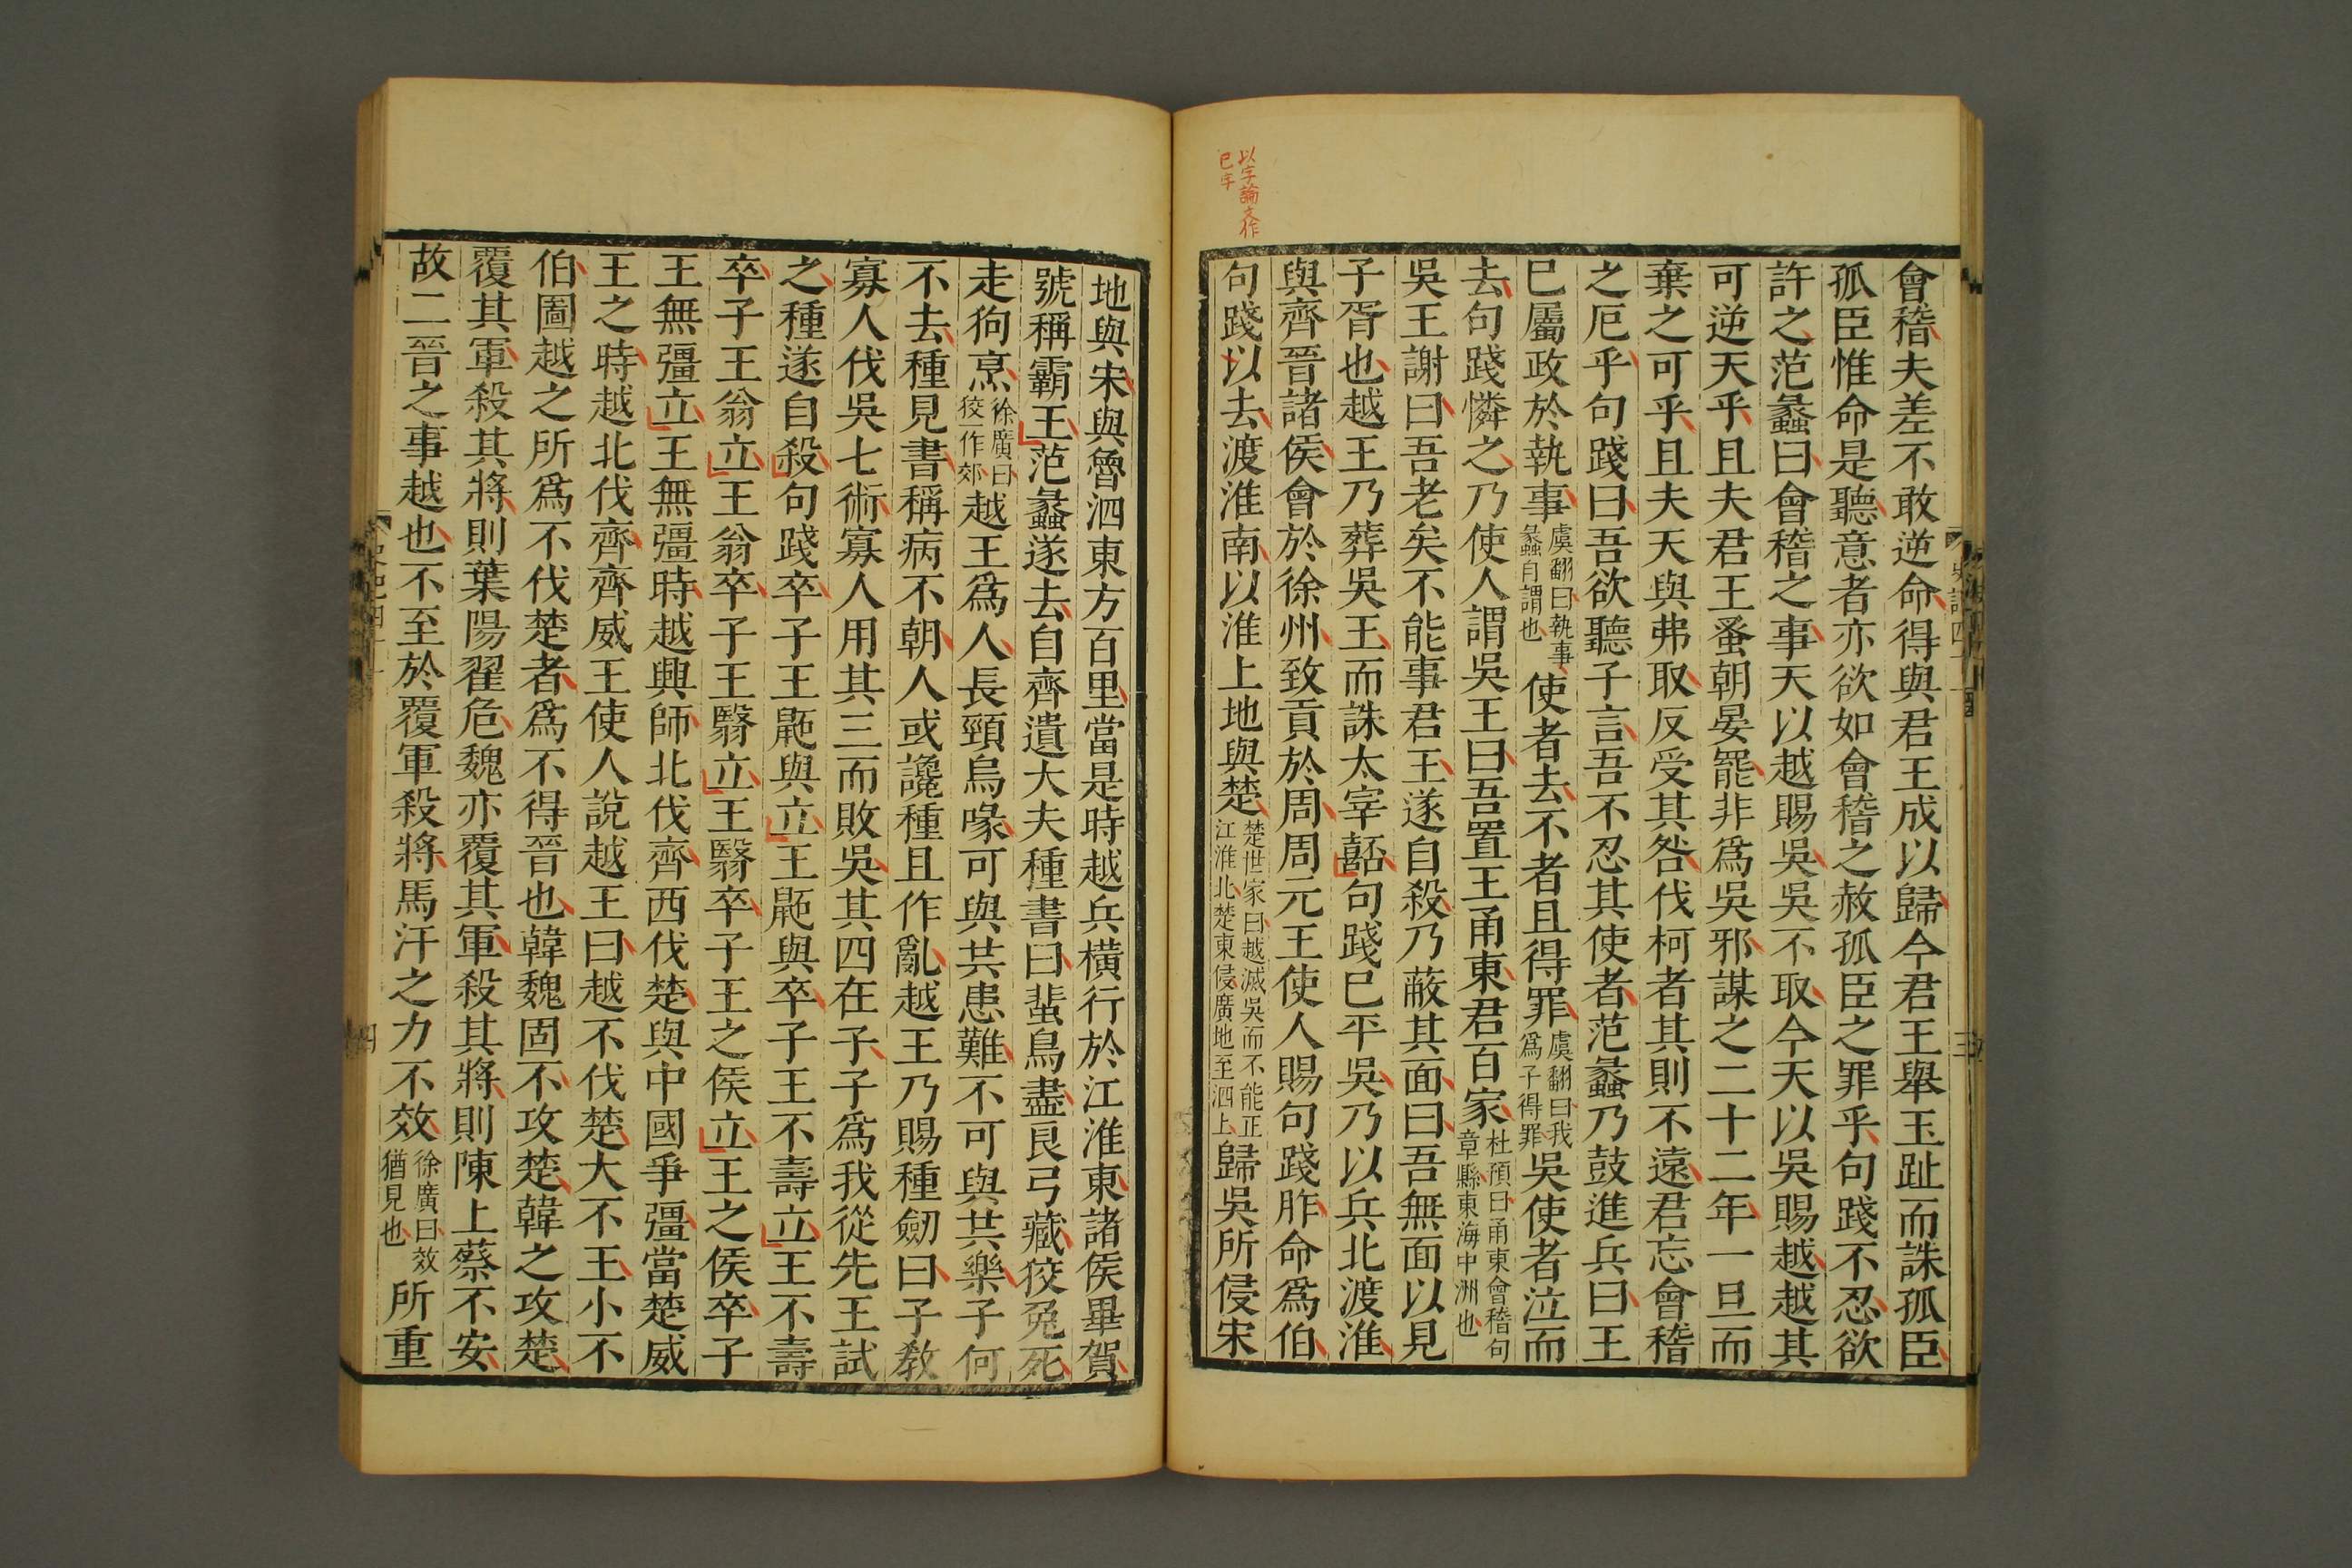 以字論文作
已字
會稽夫差不敢逆命得與君王成以歸今君王舉玉趾而誅孤臣
孤臣惟命是聽意者亦欲如會稽之赦孤臣之罪乎句踐不忍欲
許之范蠡曰會稽之事天以越賜吳吳不取今天以吳賜越越其
可逆天乎且夫君王蚤朝晏罷非爲吳邪謀之二十二年一旦而
棄之可乎且夫天與弗取反受其咎伐柯者其則不遠君忘會稽
之厄乎句踐曰吾欲聽子言吾不忍其使者范蠡乃鼓進兵曰王
已屬政於執事虞翻曰執事蠡自謂也使者去不者且得罪虞翻曰我爲子得罪吳使者泣而
去句踐憐之乃使人謂吳王曰吾置王甬東君百家杜預曰甬東會稽句章縣東海中洲也
吳王謝曰吾老矣不能事君王遂自殺乃蔽其面曰吾無面以見
子胥也越王乃葬吳王而誅太宰嚭句踐已平吳乃以兵北渡淮
與齊晉諸侯會於徐州致貢於周周元王使人賜句踐胙命爲伯
句踐以去渡淮南以淮上地與楚楚世家曰越滅吳而不能正江淮北楚東侵廣地至泗上歸吳所侵宋
地與宋與魯泗東方百里當是時越兵橫行於江淮東諸侯畢賀
號稱霸王范蠡遂去自齊遺大夫種書曰蜚鳥盡良弓藏狡兔死
走狗烹徐廣曰狡一作郊越王爲人長頸烏喙可與共患難不可與共樂子何
不去種見書稱病不朝人或讒種且作亂越王乃賜種劒曰子教
寡人伐吳七術寡人用其三而敗吳其四在子子爲我從先王試
之種遂自殺句踐卒子王鼫與立王鼫與卒子王不壽立王不壽
卒子王翁立王翁卒子王翳立王翳卒子王之侯立王之侯卒子
王無彊立王無彊時越興師北伐齊西伐楚與中國爭彊當楚威
王之時越北伐齊齊威王使人說越王曰越不伐楚大不王小不
伯圖越之所爲不伐楚者爲不得晉也韓魏固不攻楚韓之攻楚
覆其軍殺其將則葉陽翟危魏亦覆其軍殺其將則陳上蔡不安
故二晉之事越也不至於覆軍殺將馬汗之力不效徐廣曰效猶見也所重